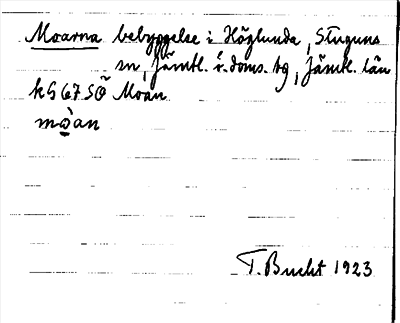 Moarna bebyggelse i Höglunda, Stuguns
sn, Jämtl. ö. doms. tg, Jämtl. län
kG 67 SÖ Moan
mòan
T. Bucht 1923